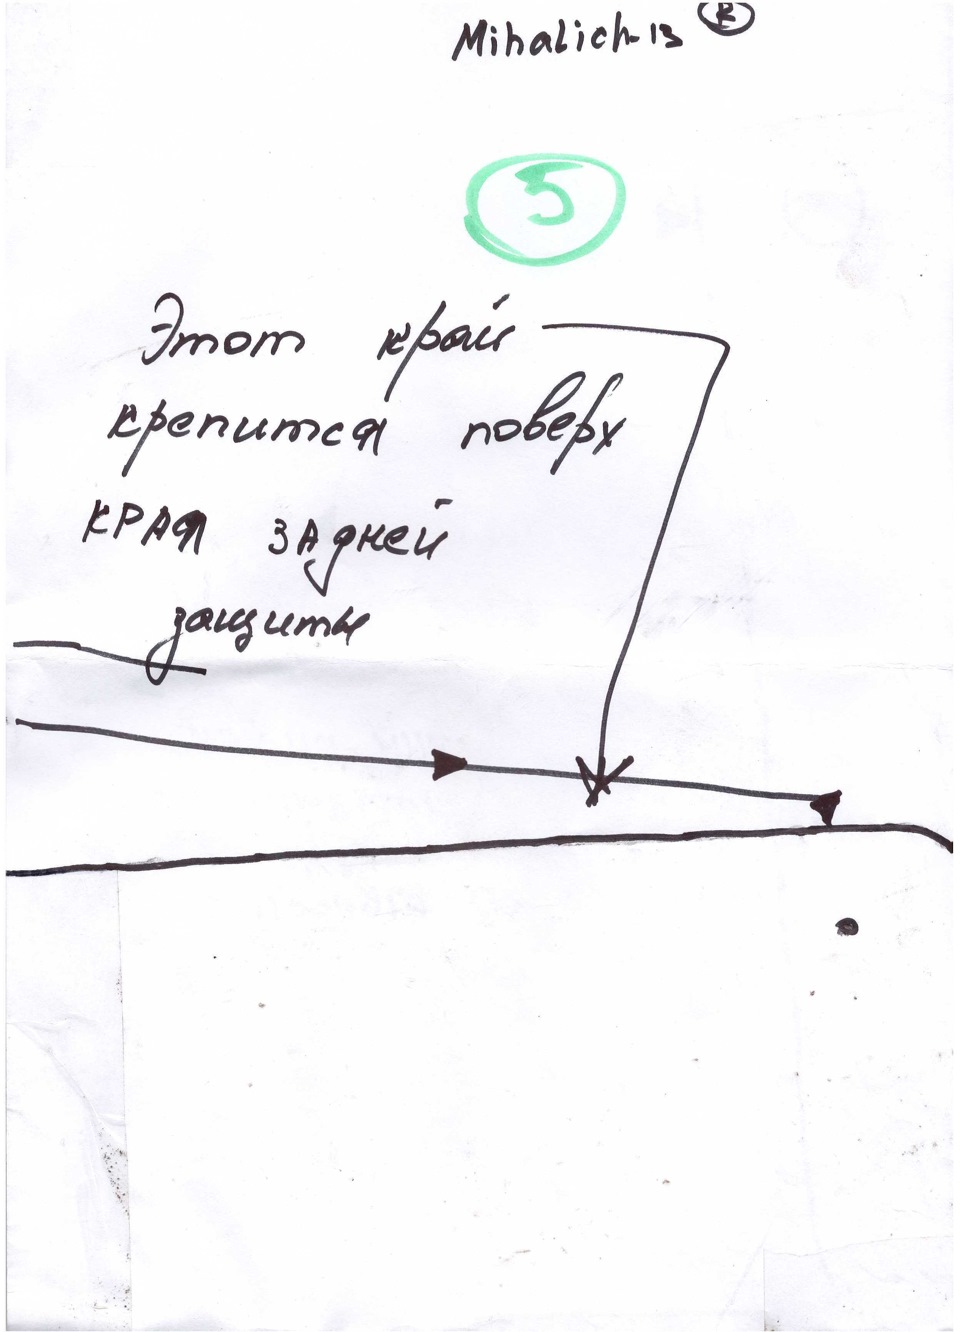 Mihalich-13 ®
5
Этот край
крепится поверх
КРАЯ ЗАДНЕЙ
защиты